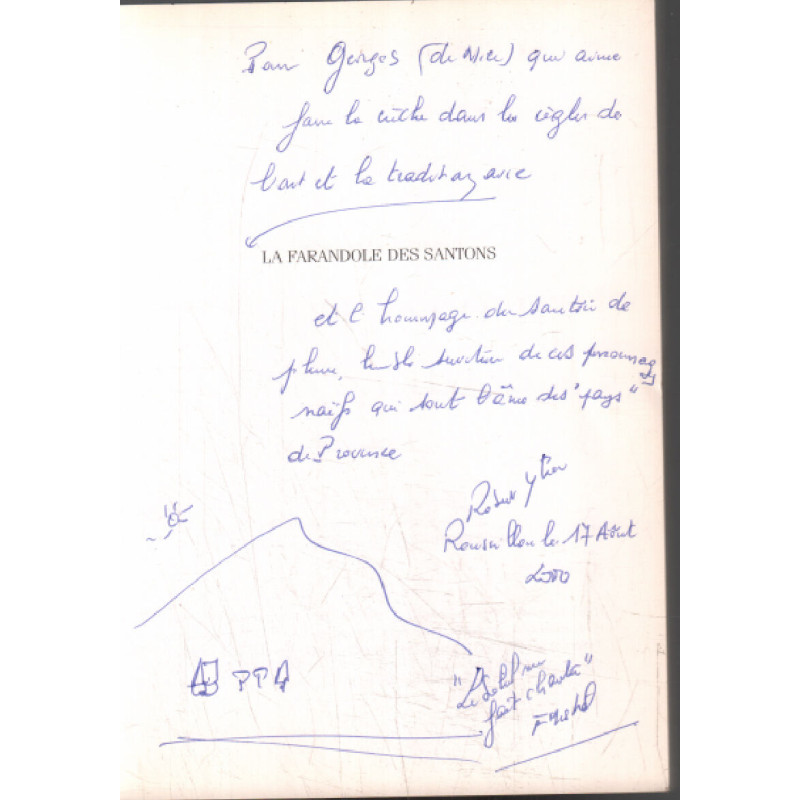 Pour Georges (de Nice) qui aime
faire la crèche dans les règles de
l'art et la tradition avec
LA FARANDOLE DES SANTONS
et l'hommage du santon de
plume, humble serviteur de ces personnages
naïfs qui sont l'âme des "pays"
de Provence
Robert Ytier
Roussillon le 17 Août
2000
"Le Soleil me
fait chanter"
F Mistral